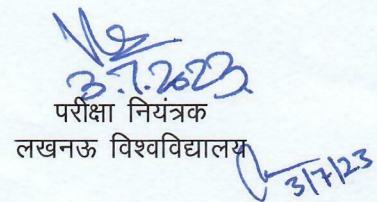 3.7.2023
परीक्षा नियंत्रक
लखनऊ विश्वविद्यालय
3/7/23